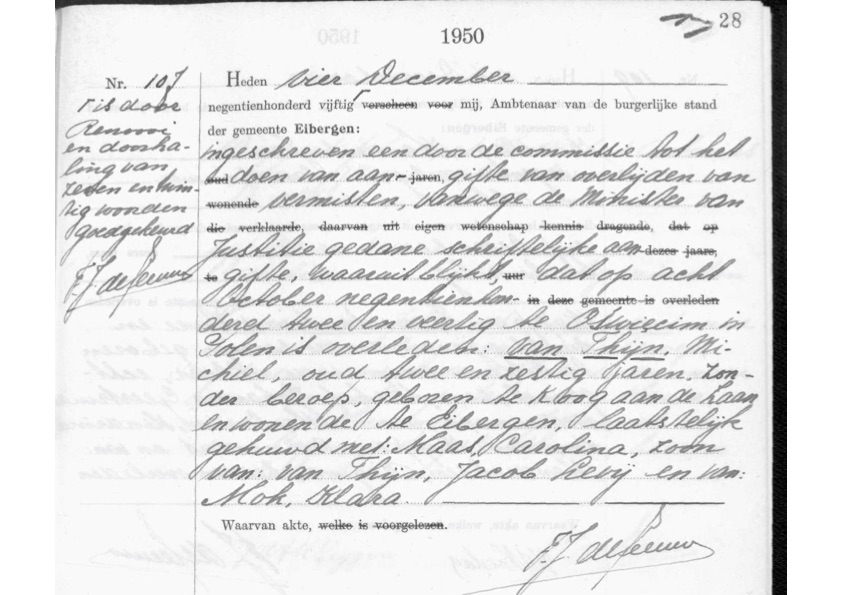 28
1950
Nr. 107
Γ is door
Renvooi
en doorha-
ling van
zeven en twin-
tig woorden
goedgekeurd
F.J. de Leeuw
Heden vier December
negentienhonderd vijftig Γ verscheen voor mij, Ambtenaar van de burgerlijke stand
der gemeente Eibergen:
ingeschreven een door de commissie tot het
oud doen van aan- jaren, gifte van overlijden van
wonende vermisten, vanwege de Minister van
die verklaarde, daarvan uit eigen wetenschap kennis dragende, dat op
Justitie gedane schriftelijke aan- dezes jaars,
te gifte, waaruit blijkt, uur dat op acht
October negentienhon- in deze gemeente is overleden
derd twee en veertig te Oswiecim in
Polen is overleden: van Thijn, Mi-
chiel, oud twee en zestig jaren, zon-
der beroep, geboren te Koog aan de Zaan
en wonende te Eibergen, laatstelijk
gehuwd met: Maas, Carolina, zoon
van: van Thijn, Jacob Levij en van:
Mok, Klara.
Waarvan akte, welke is voorgelezen.
F.J. de Leeuw